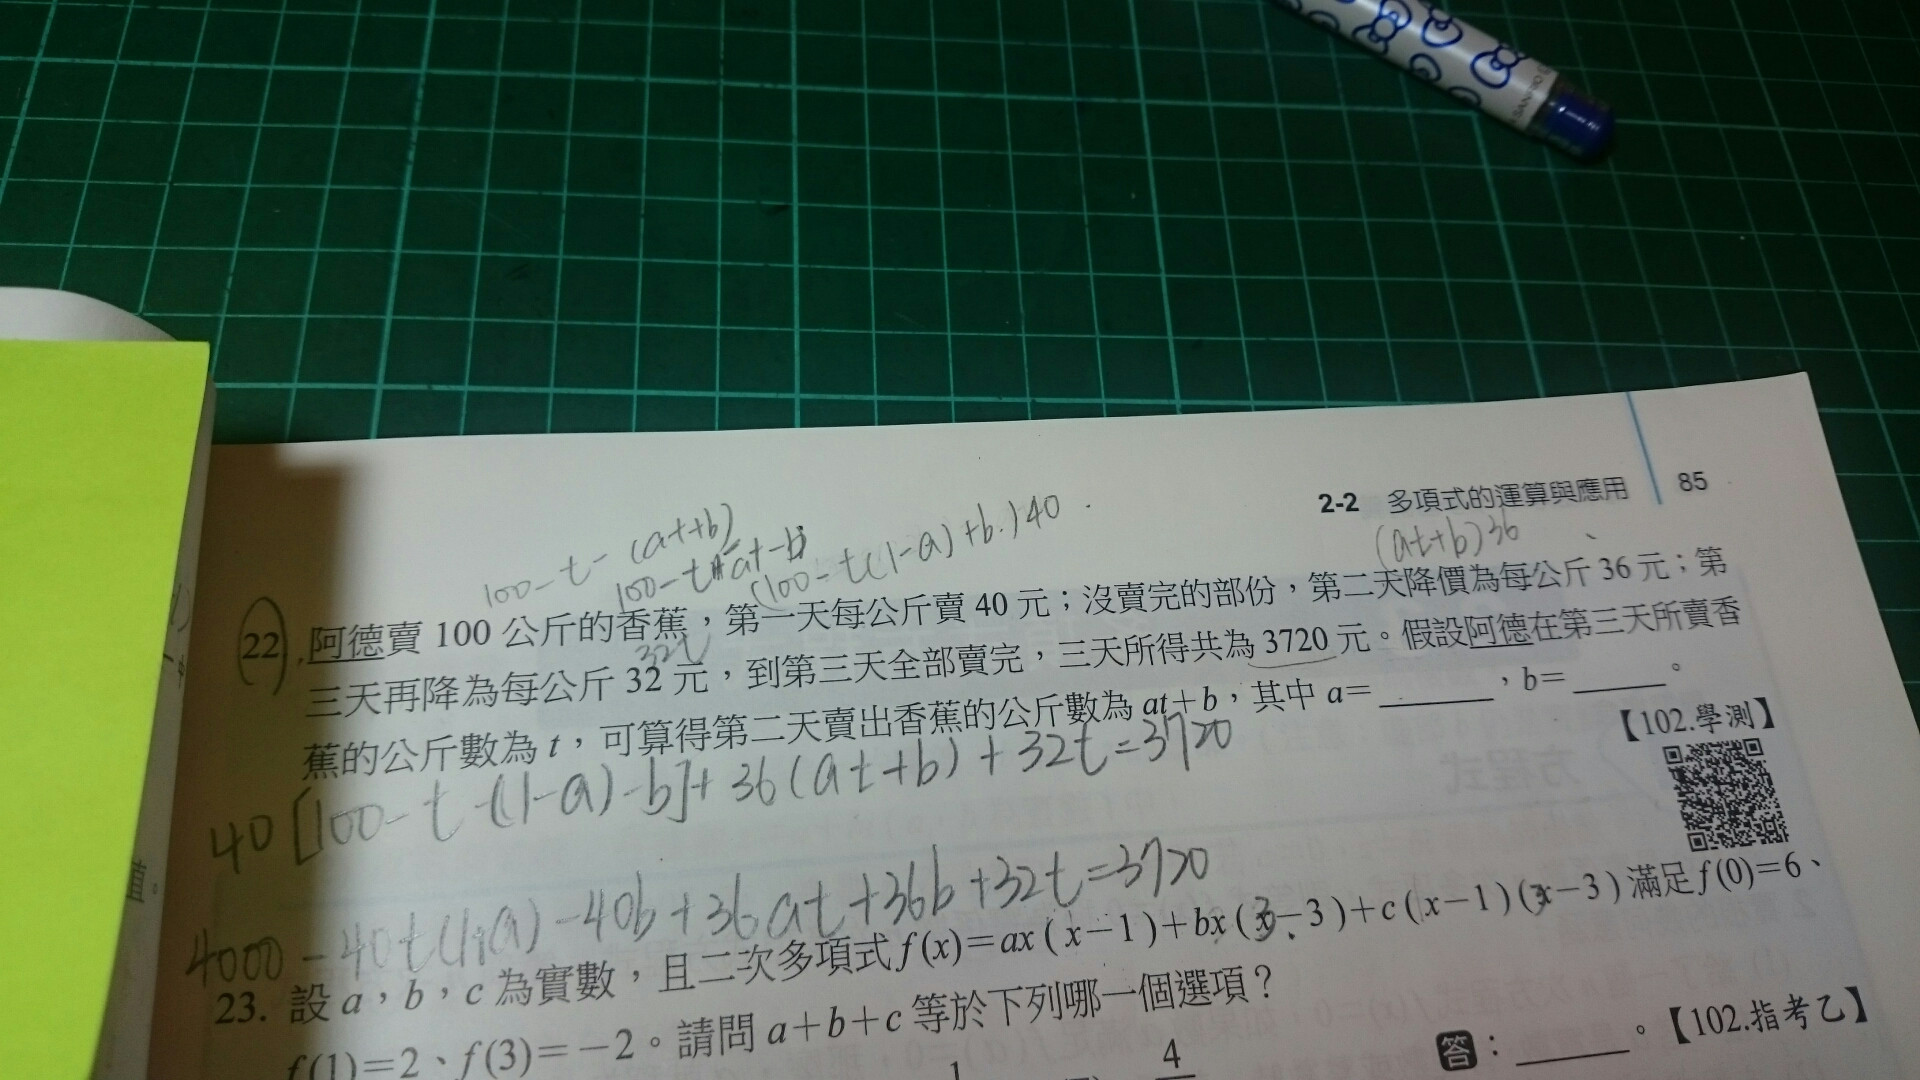 SANRIO
2-2 多項式的運算與應用 85
100-t-(at+b)
100-t-at-b
(100-t(1-a)+b.)40
(at+b)36
22. 阿德賣 100 公斤的香蕉，第一天每公斤賣 40 元；沒賣完的部份，第二天降價為每公斤 36 元；第
32t
三天再降為每公斤 32 元，到第三天全部賣完，三天所得共為 3720 元。假設阿德在第三天所賣香
蕉的公斤數為 t，可算得第二天賣出香蕉的公斤數為 at+b，其中 a=______，b=______。
【102.學測】
40[100-t-(1-a)-b]+36(at+b)+32t=3720
4000-40t(1+a)-40b+36at+36b+32t=3720
23. 設 a，b，c 為實數，且二次多項式 f(x)=ax(x-1)+bx(x-3)+c(x-1)(x-3) 滿足 f(0)=6、
f(1)=2、f(3)=-2。請問 a+b+c 等於下列哪一個選項？
答：______。【102.指考乙】
1 4